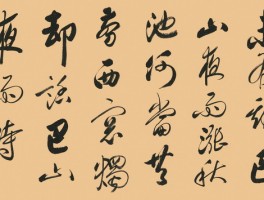 未有期巴
山夜雨漲秋
池何當共
剪西窗燭
却話巴山
夜雨時